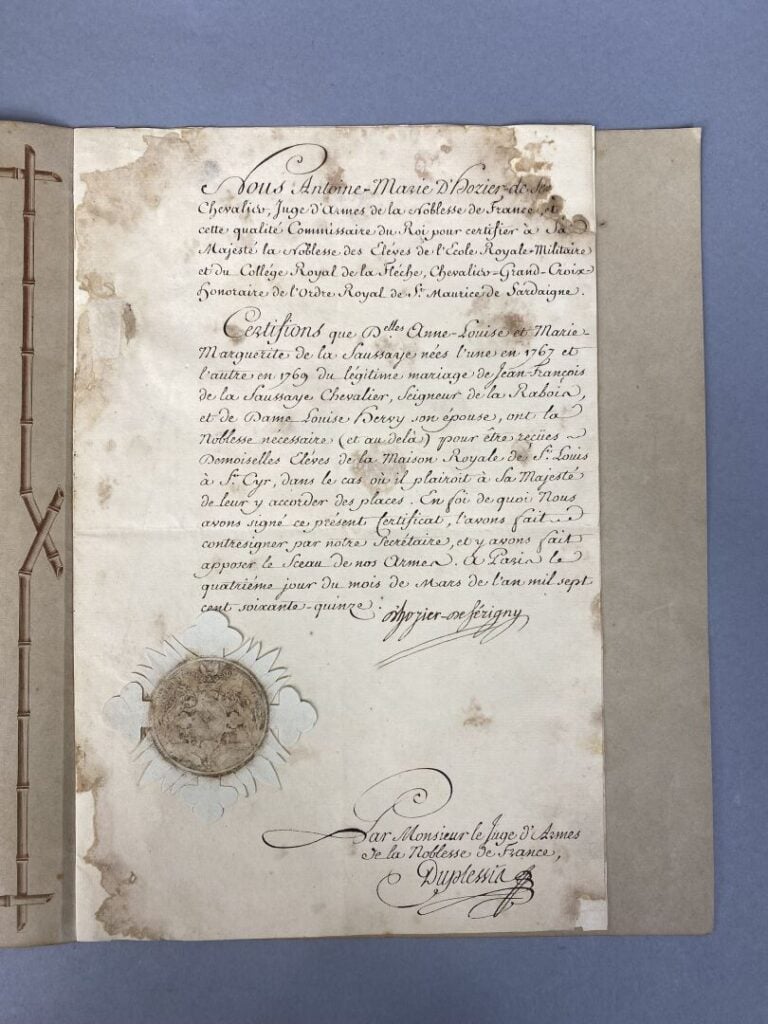 Nous Antoine-Marie D'Hozier-de
Chevalier, Juge d'Armes de la Noblesse de France, et
cette qualité Commissaire du Roi pour certifier à Sa
Majesté la Noblesse des Eléves de l'Ecole Royale-Militaire
et du Collége Royal de la Fléche, Chevalier-Grand-Croix
Honoraire de l'Ordre Royal de St. Maurice de Sardaigne.
Certifions que Delles Anne-Louise et Marie-
Marguerite de la Saussaye nées l'une en 1767 et
l'autre en 1769 du légitime mariage de Jean-François
de la Saussaye Chevalier, Seigneur de la Rabois,
et de Dame Louise Hervy son épouse, ont la
Noblesse nécessaire (et au delà) pour être reçües
Demoiselles Eléves de la Maison Royale de St. Louis
à St. Cyr, dans le cas où il plairoit à Sa Majesté
de leur y accorder des places. En foi de quoi Nous
avons signé ce présent Certificat, l'avons fait
contresigner par notre Secrétaire, et y avons fait
apposer le Sceau de nos Armes. A Paris le
quatriéme jour du mois de Mars de l'an mil sept
cent soixante-quinze.
d'hozier-de Sérigny
Par Monsieur le Juge d'Armes
de la Noblesse de France,
Duplessis